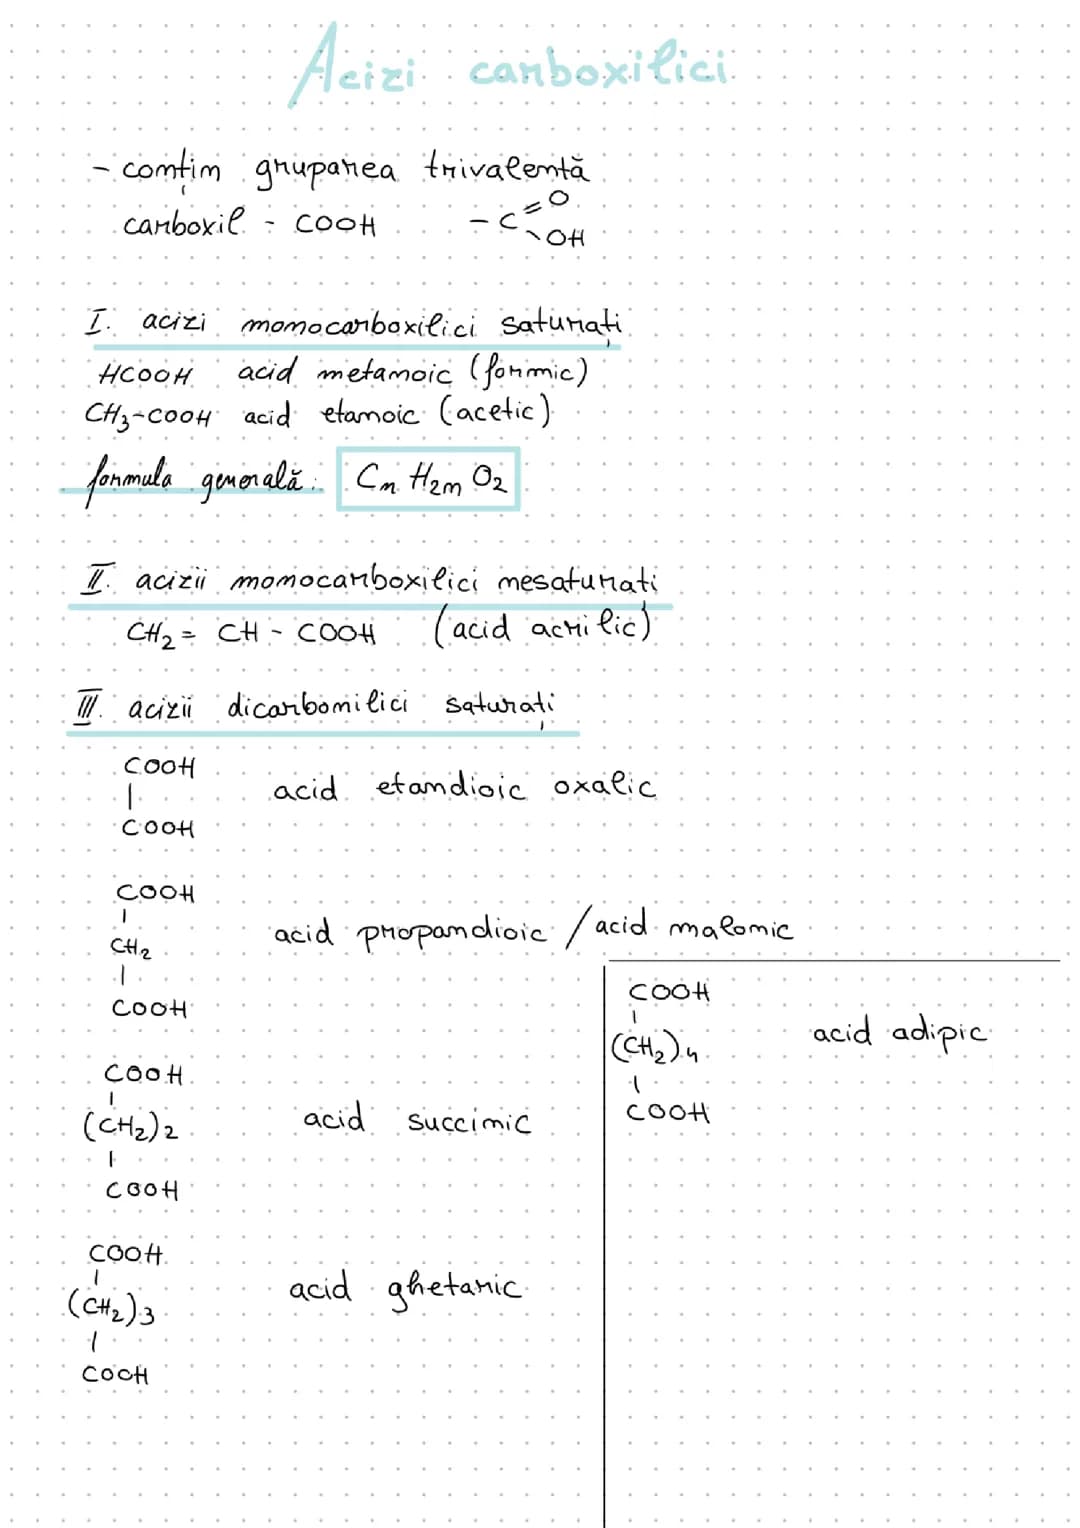 Acizi carboxilici
- conțin gruparea trivalentă
carboxil - COOH -C=O
\OH
I. acizi monocarboxilici saturați
HCOOH acid metanoic (formic)
CH3-COOH acid etanoic (acetic)
formula generală: CnH2nO2
II. acizii monocarboxilici nesaturati
CH2 = CH - COOH (acid acrilic)
III. acizii dicarbonilici saturați
COOH
|
COOH
acid etandioic oxalic
COOH
|
CH2
|
COOH
acid propandioic / acid malonic
COOH
|
(CH2)2
|
COOH
acid succinic
COOH
|
(CH2)3
|
COOH
acid ghetaric
COOH
|
(CH2)4
|
COOH
acid adipic